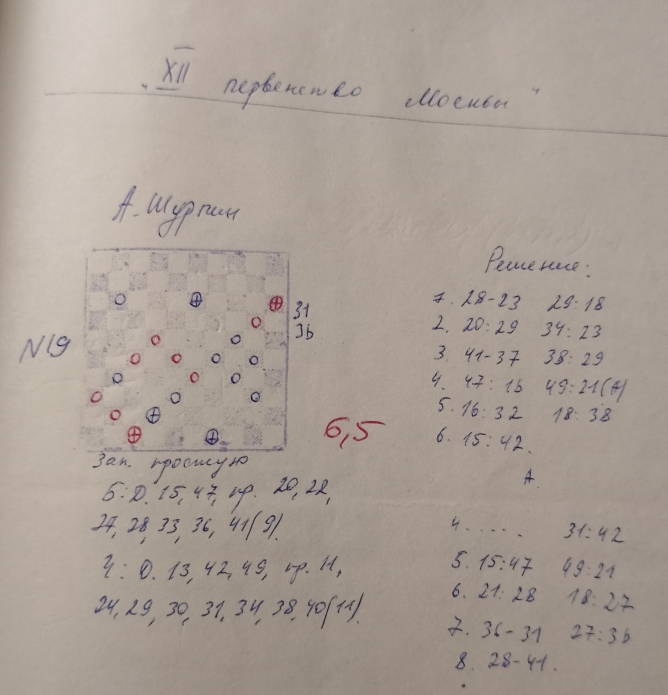 "XII первенство Москвы"
А. Шурпин
N19
31
3b
6,5
Зап. простую
Б: Д. 15, 47, пр. 20, 22,
27, 28, 33, 36, 41 (9).
Ч: Д. 13, 42, 49, пр. 11,
24, 29, 30, 31, 34, 38, 40 (11).
Решение:
1. 28-23 29:18
2. 20:29 34:23
3. 41-37 38:29
4. 47:15 49:21 (А)
5. 16:32 18:38
6. 15:42.
А.
4. ..... 31:42
5. 15:47 49:21
6. 21:28 18:27
7. 36-31 27:3b
8. 28-41.